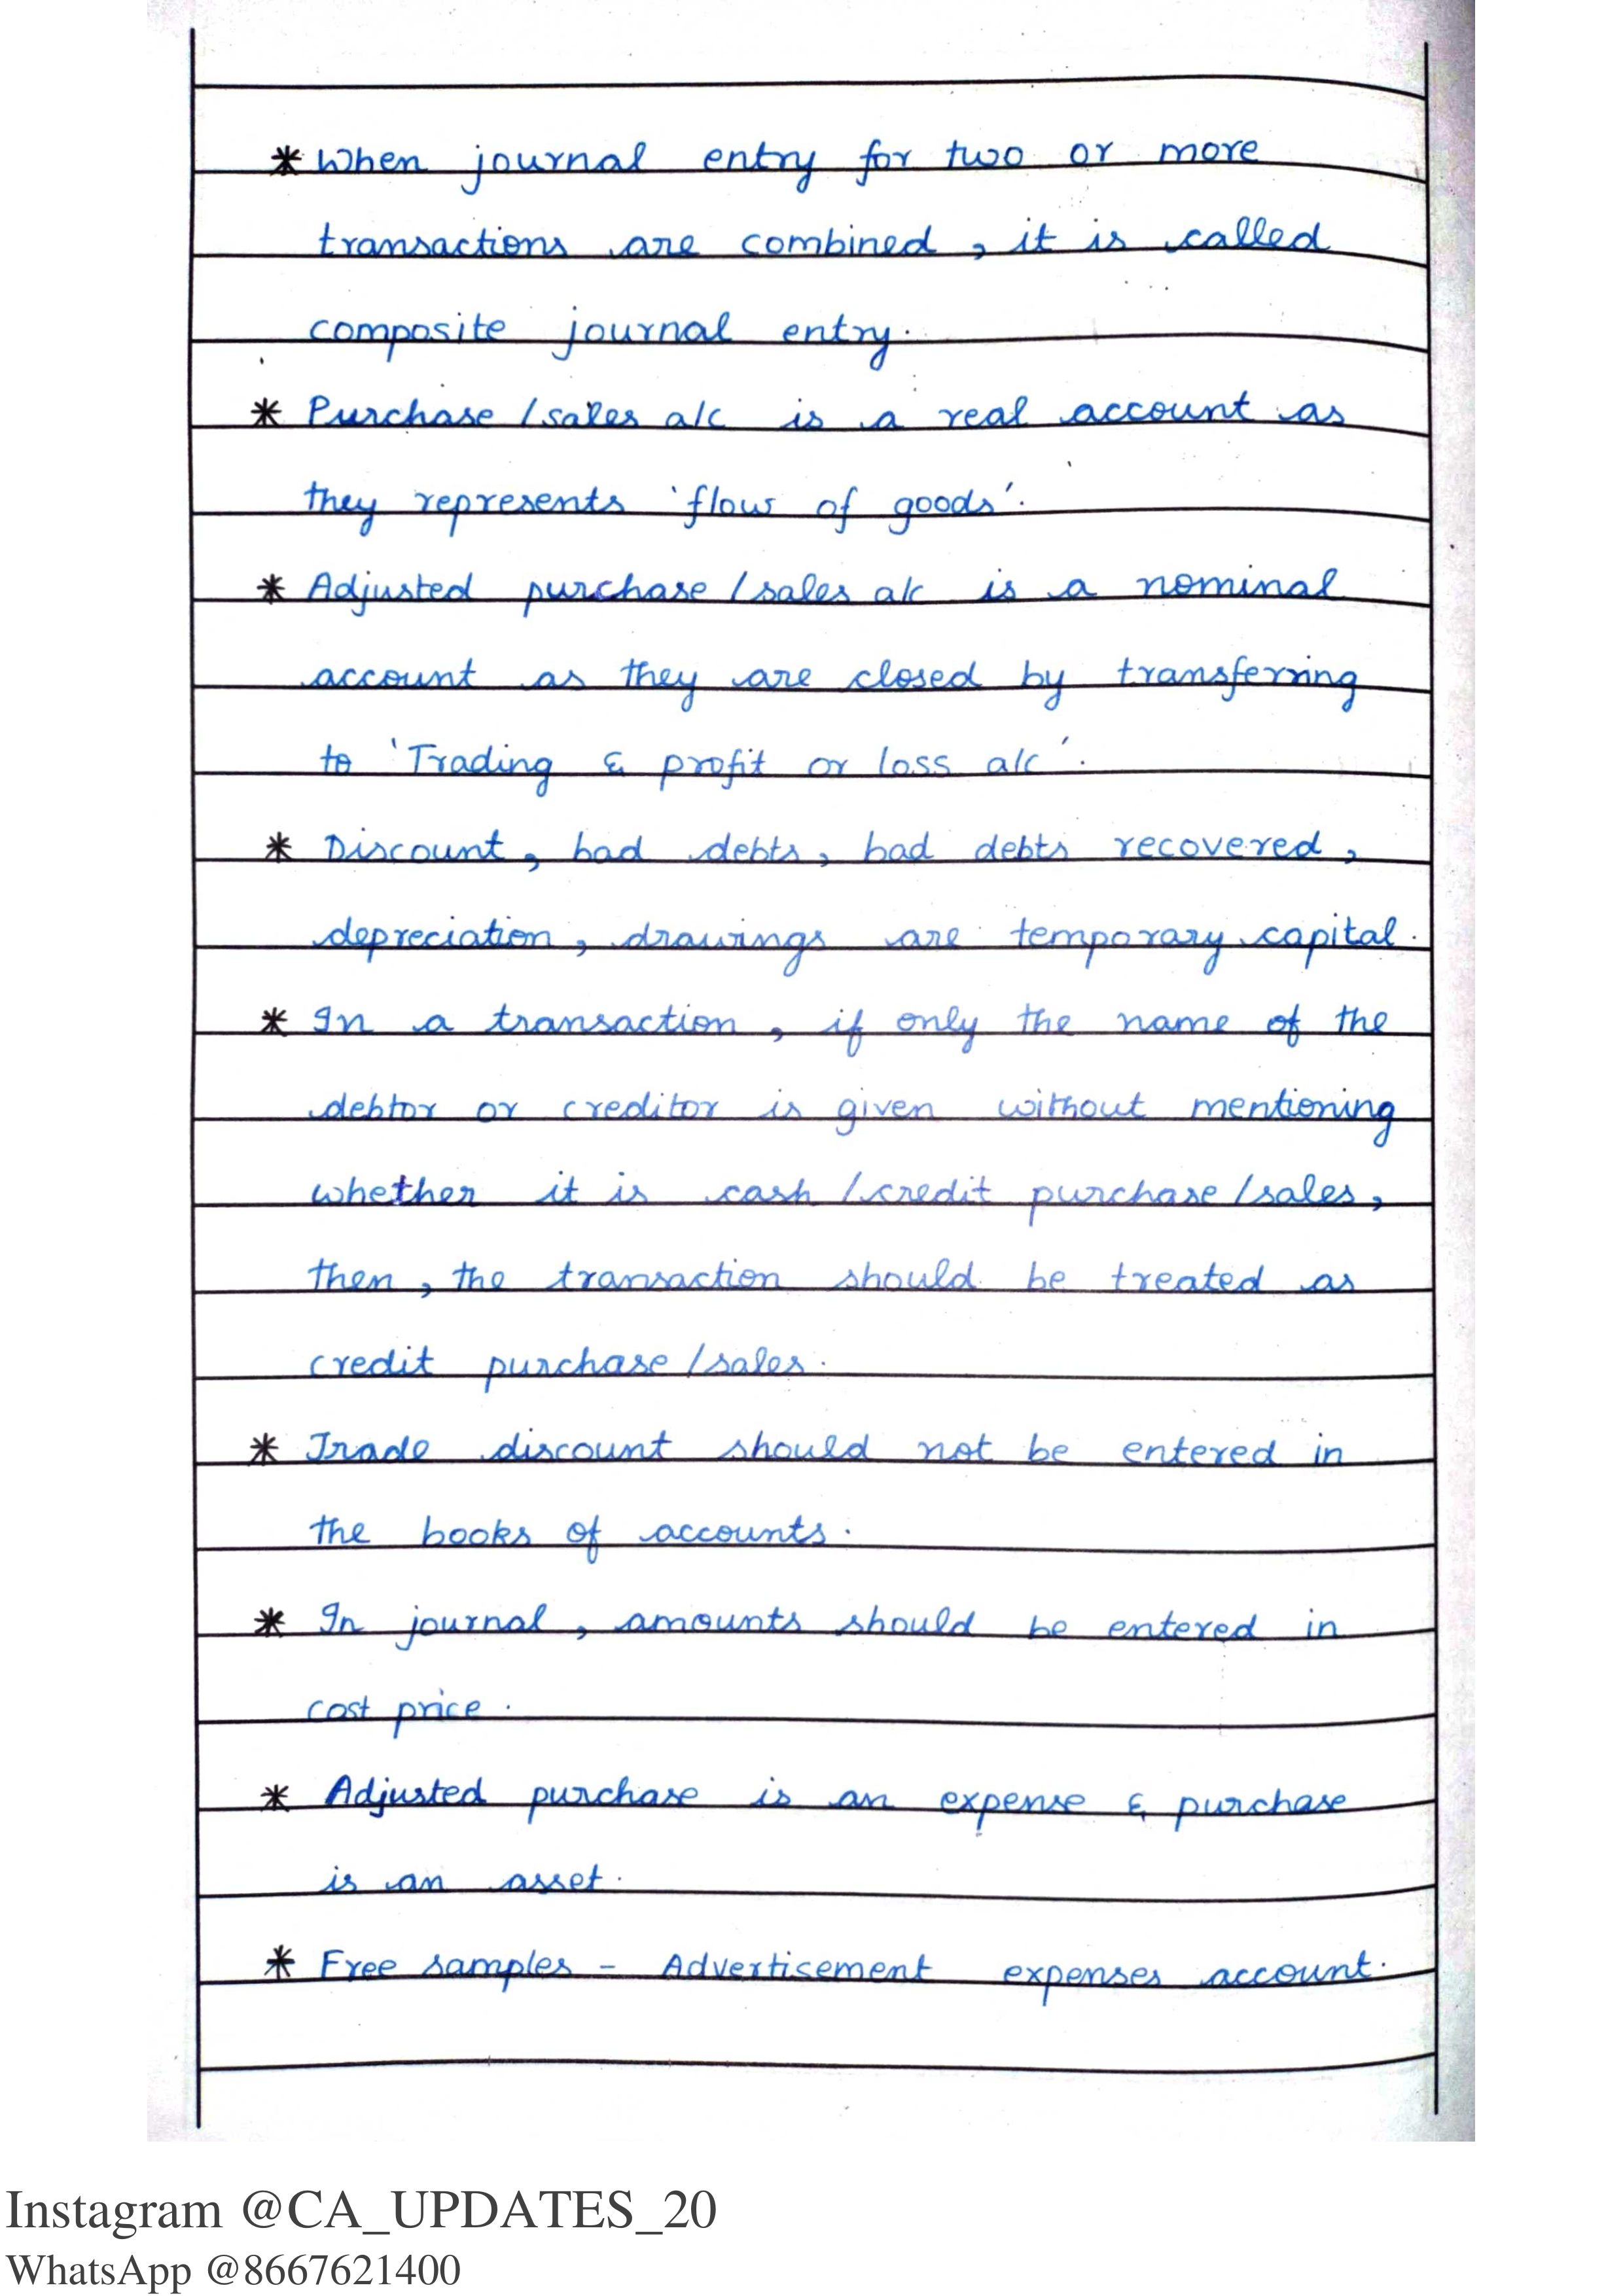 * When journal entry for two or more
transactions are combined, it is called
composite journal entry.
* Purchase/sales a/c is a real account as
they represents 'flow of goods'.
* Adjusted purchase/sales a/c is a nominal
account as they are closed by transferring
to 'Trading & profit or loss a/c'.
* Discount, bad debts, bad debts recovered,
depreciation, drawings are temporary capital.
* In a transaction, if only the name of the
debtor or creditor is given without mentioning
whether it is cash/credit purchase/sales,
then, the transaction should be treated as
credit purchase/sales.
* Trade discount should not be entered in
the books of accounts.
* In journal, amounts should be entered in
cost price.
* Adjusted purchase is an expense & purchase
is an asset.
* Free samples - Advertisement expenses account.
Instagram @CA_UPDATES_20
WhatsApp @8667621400